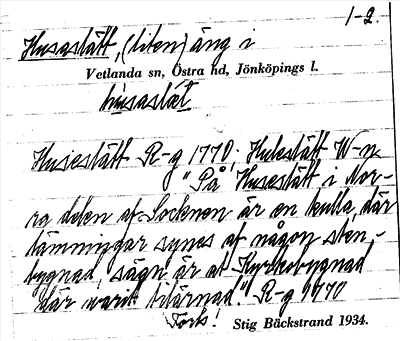 1-2.
Husastätt, (liten) äng i
Vetlanda sn, Östra hd, Jönköpings l.
husastät
Husestätt R-g 1770; Hulestätt W-n
"På Husestätt i Nor-
ra delen af Socknen är en kulla, där
lämningar synes af någon sten-
bygnad, sägn är at Kyrkobygnad
där warit tilärnad." R-g 1770
Torp!
Stig Bäckstrand 1934.